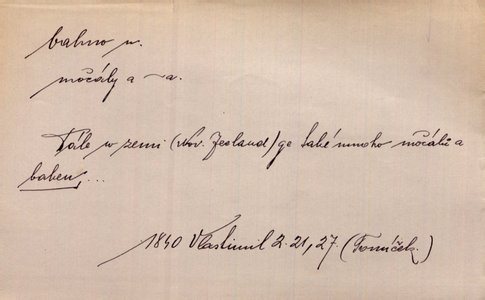 bahno n.
močály a ~a.
Dále w zemi (Nov. Zealand) ge také mnoho močálů a
bahen, ...
1840 Vlastimil 2. 21, 27. (Tomíček.)